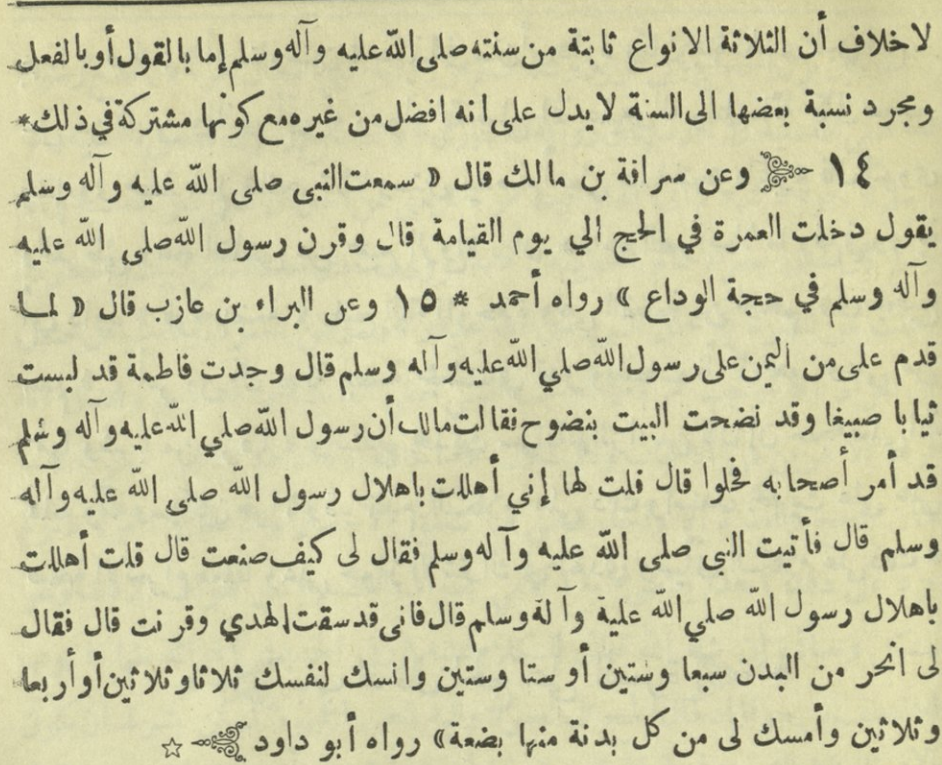 لا خلاف أن الثلاثة الانواع ثابتة من سنته صلى الله عليه وآله وسلم إما بالقول أو بالفعل
ومجرد نسبة بعضها الى السنة لا يدل على انه افضل من غيره مع كونها مشتركة في ذلك *
١٤ وعن سراقة بن مالك قال « سمعت النبى صلى الله عليه وآله وسلم
يقول دخلت العمرة في الحج الي يوم القيامة قال وقرن رسول الله صلى الله عليه
وآله وسلم في حجة الوداع » رواه أحمد * ١٥ وعن البراء بن عازب قال « لما
قدم على من اليمن على رسول الله صلي الله عليه وآله وسلم قال وجدت فاطمة قد لبست
ثيابا صبيغا وقد نضحت البيت بنضوح فقالت مالك أن رسول الله صلي الله عليه وآله وسلم
قد أمر أصحابه فحلوا قال قلت لها إني أهللت باهلال رسول الله صلى الله عليه وآله
وسلم قال فأتيت النبى صلى الله عليه وآله وسلم فقال لى كيف صنعت قال قلت أهللت
باهلال رسول الله صلي الله علية وآلة وسلم قال فانى قد سقت الهدي وقرنت قال فقال
لى انحر من البدن سبعا وستين أو ستا وستين وانسك لنفسك ثلاثا وثلاثين أو أربعا
وثلاثين وأمسك لى من كل بدنة منها بضعة » رواه أبو داود ☆